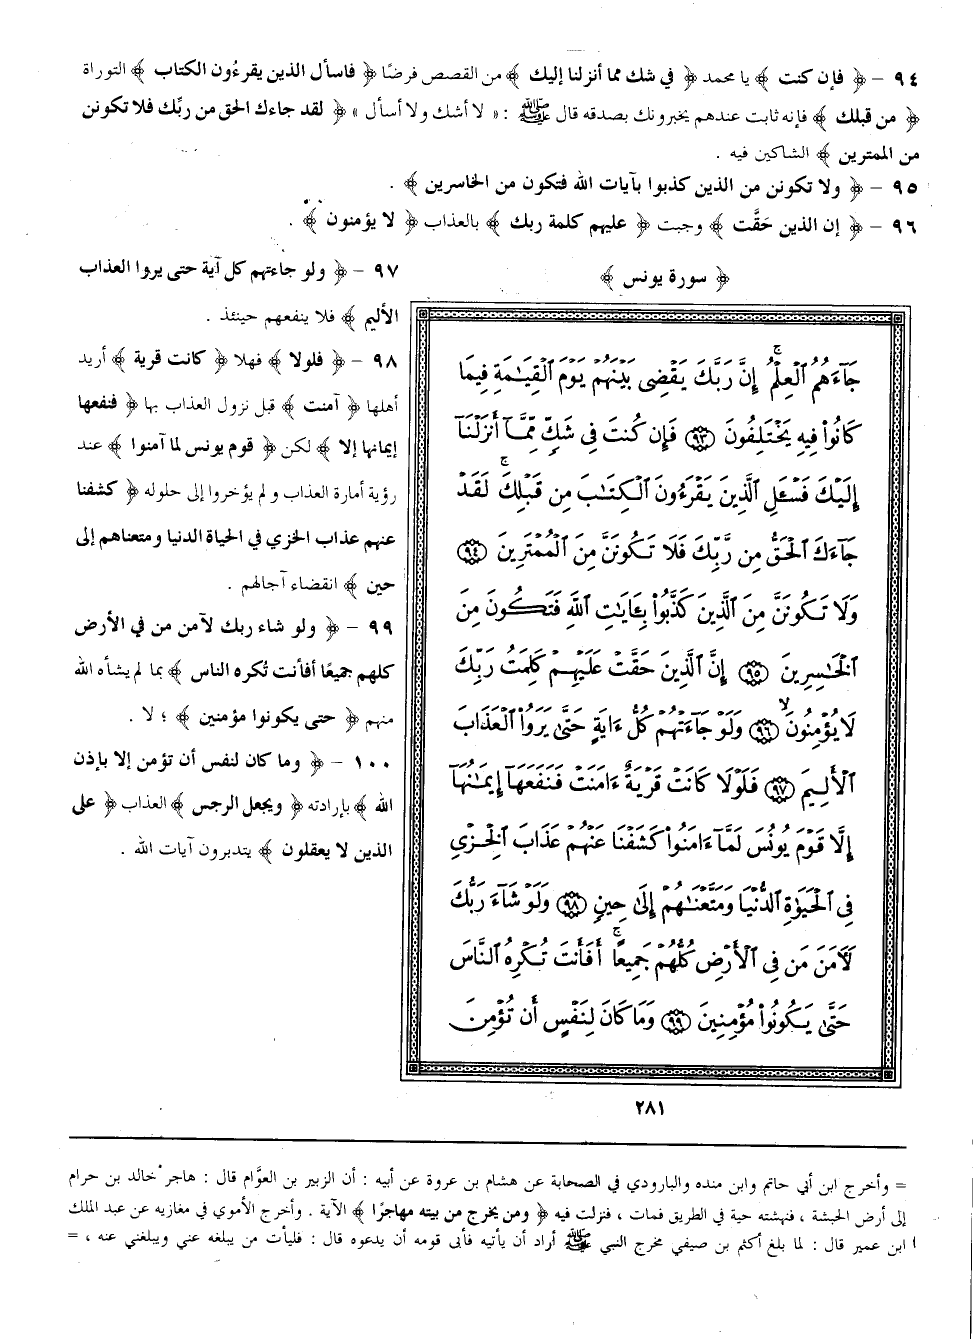 ٩٤ – ﴿ فإن كنت ﴾ يا محمد ﴿ في شك مما أنزلنا إليك ﴾ من القصص فرضًا ﴿ فاسأل الذين يقرءُون الكتاب ﴾ التوراة
﴿ من قبلك ﴾ فإنه ثابت عندهم يخبرونك بصدقه قال ﷺ : « لا أشك ولا أسأل » ﴿ لقد جاءك الحق من ربِّك فلا تكونن
من الممترين ﴾ الشاكين فيه .
٩٥ – ﴿ ولا تكونن من الذين كذبوا بآيات الله فتكون من الخاسرين ﴾ .
٩٦ – ﴿ إن الذين حَقَّت ﴾ وجبت ﴿ عليهم كلمة ربك ﴾ بالعذاب ﴿ لا يؤمنون ﴾ .
٩٧ – ﴿ ولو جاءتهم كل آية حتى يروا العذاب
الأليم ﴾ فلا ينفعهم حينئذ .
٩٨ – ﴿ فلولا ﴾ فهلا ﴿ كانت قرية ﴾ أريد
أهلها ﴿ آمنت ﴾ قبل نزول العذاب بها ﴿ فنفعها
إيمانها إلا ﴾ لكن ﴿ قوم يونس لما آمنوا ﴾ عند
رؤية أمارة العذاب ولم يؤخروا إلى حلوله ﴿ كشفنا
عنهم عذاب الخزي في الحياة الدنيا ومتعناهم إلى
حين ﴾ انقضاء آجالهم .
٩٩ – ﴿ ولو شاء ربك لآمن من في الأرض
كلهم جميعًا أفأنت تُكره الناس ﴾ بما لم يشأه الله
منهم ﴿ حتى يكونوا مؤمنين ﴾ ؛ لا .
١٠٠ – ﴿ وما كان لنفس أن تؤمن إلا بإذن
الله ﴾ بإرادته ﴿ ويجعل الرجس ﴾ العذاب ﴿ على
الذين لا يعقلون ﴾ يتدبرون آيات الله .
﴿ سورة يونس ﴾
جَآءَهُمُ ٱلْعِلْمُ ۚ إِنَّ رَبَّكَ يَقْضِى بَيْنَهُمْ يَوْمَ ٱلْقِيَٰمَةِ فِيمَا
كَانُوا۟ فِيهِ يَخْتَلِفُونَ ٩٣ فَإِن كُنتَ فِى شَكٍّ مِّمَّآ أَنزَلْنَآ
إِلَيْكَ فَسْـَٔلِ ٱلَّذِينَ يَقْرَءُونَ ٱلْكِتَٰبَ مِن قَبْلِكَ ۚ لَقَدْ
جَآءَكَ ٱلْحَقُّ مِن رَّبِّكَ فَلَا تَكُونَنَّ مِنَ ٱلْمُمْتَرِينَ ٩٤
وَلَا تَكُونَنَّ مِنَ ٱلَّذِينَ كَذَّبُوا۟ بِـَٔايَٰتِ ٱللَّهِ فَتَكُونَ مِنَ
ٱلْخَٰسِرِينَ ٩٥ إِنَّ ٱلَّذِينَ حَقَّتْ عَلَيْهِمْ كَلِمَتُ رَبِّكَ
لَا يُؤْمِنُونَ ۙ ٩٦ وَلَوْ جَآءَتْهُمْ كُلُّ ءَايَةٍ حَتَّىٰ يَرَوُا۟ ٱلْعَذَابَ
ٱلْأَلِيمَ ٩٧ فَلَوْلَا كَانَتْ قَرْيَةٌ ءَامَنَتْ فَنَفَعَهَآ إِيمَٰنُهَآ
إِلَّا قَوْمَ يُونُسَ لَمَّآ ءَامَنُوا۟ كَشَفْنَا عَنْهُمْ عَذَابَ ٱلْخِزْىِ
فِى ٱلْحَيَوٰةِ ٱلدُّنْيَا وَمَتَّعْنَٰهُمْ إِلَىٰ حِينٍ ٩٨ وَلَوْ شَآءَ رَبُّكَ
لَـَٔامَنَ مَن فِى ٱلْأَرْضِ كُلُّهُمْ جَمِيعًا ۚ أَفَأَنتَ تُكْرِهُ ٱلنَّاسَ
حَتَّىٰ يَكُونُوا۟ مُؤْمِنِينَ ٩٩ وَمَا كَانَ لِنَفْسٍ أَن تُؤْمِنَ
٢٨١
= وأخرج ابن أبي حاتم وابن منده والبارودي في الصحابة عن هشام بن عروة عن أبيه : أن الزبير بن العوَّام قال : هاجر خالد بن حرام
إلى أرض الحبشة ، فنهشته حية في الطريق فمات ، فنزلت فيه ﴿ ومن يخرج من بيته مهاجرًا ﴾ الآية . وأخرج الأموي في مغازيه عن عبد الملك
ابن عمير قال : لما بلغ أكثم بن صيفي مخرج النبي ﷺ أراد أن يأتيه فأبى قومه أن يدعوه قال : فليأت من يبلغه عني ويبلغني عنه ، =